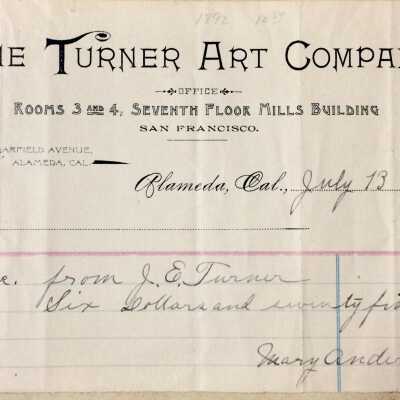 1892
HE TURNER ART COMPA
OFFICE
ROOMS 3 AND 4, SEVENTH FLOOR MILLS BUILDING
SAN FRANCISCO.
GARFIELD AVENUE,
ALAMEDA, CAL.
Alameda, Cal., July 13
from J. E. Turner
Six Dollars and
Mary Ande